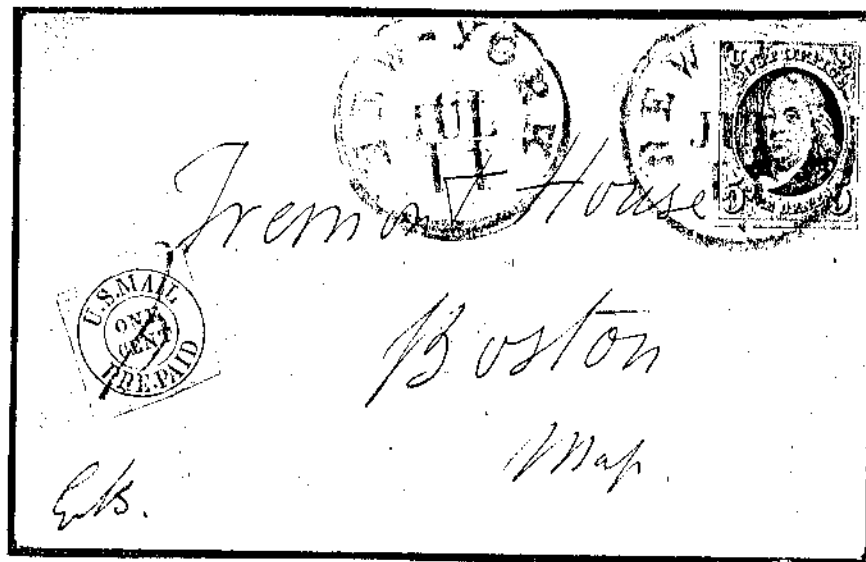 NEW-YORK
JUL
11
NEW
POST OFFICE
5
Tremont House
U.S.MAIL
ONE
CENT
PRE-PAID
Boston
Mass.